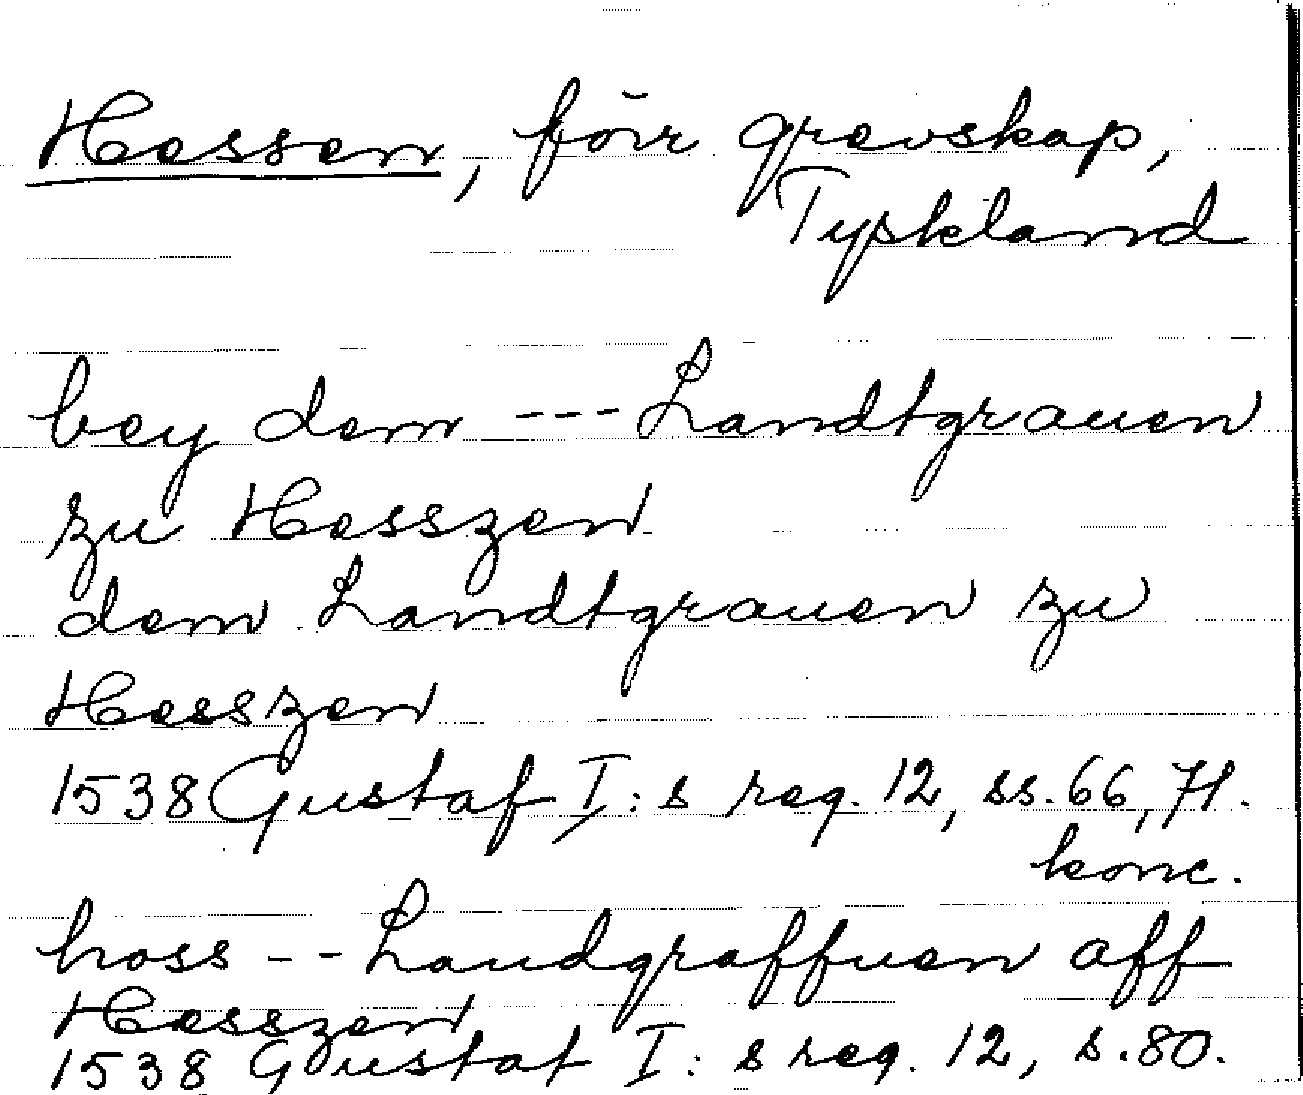 Hessen, förr grevskap,
Tyskland
bey dem --- Landtgrauen
zu Hesszen
dem Landtgrauen zu
Hesszen
1538 Gustaf I:s reg. 12, ss. 66, 71.
konc.
hoss -- Landgraffuen aff
Hesszen
1538 Gustaf I:s reg. 12, s. 80.